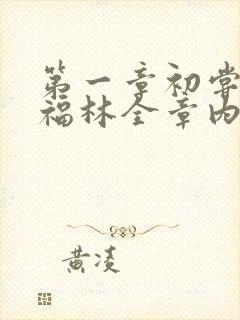 第一章初尝
福林全章内
黄凌